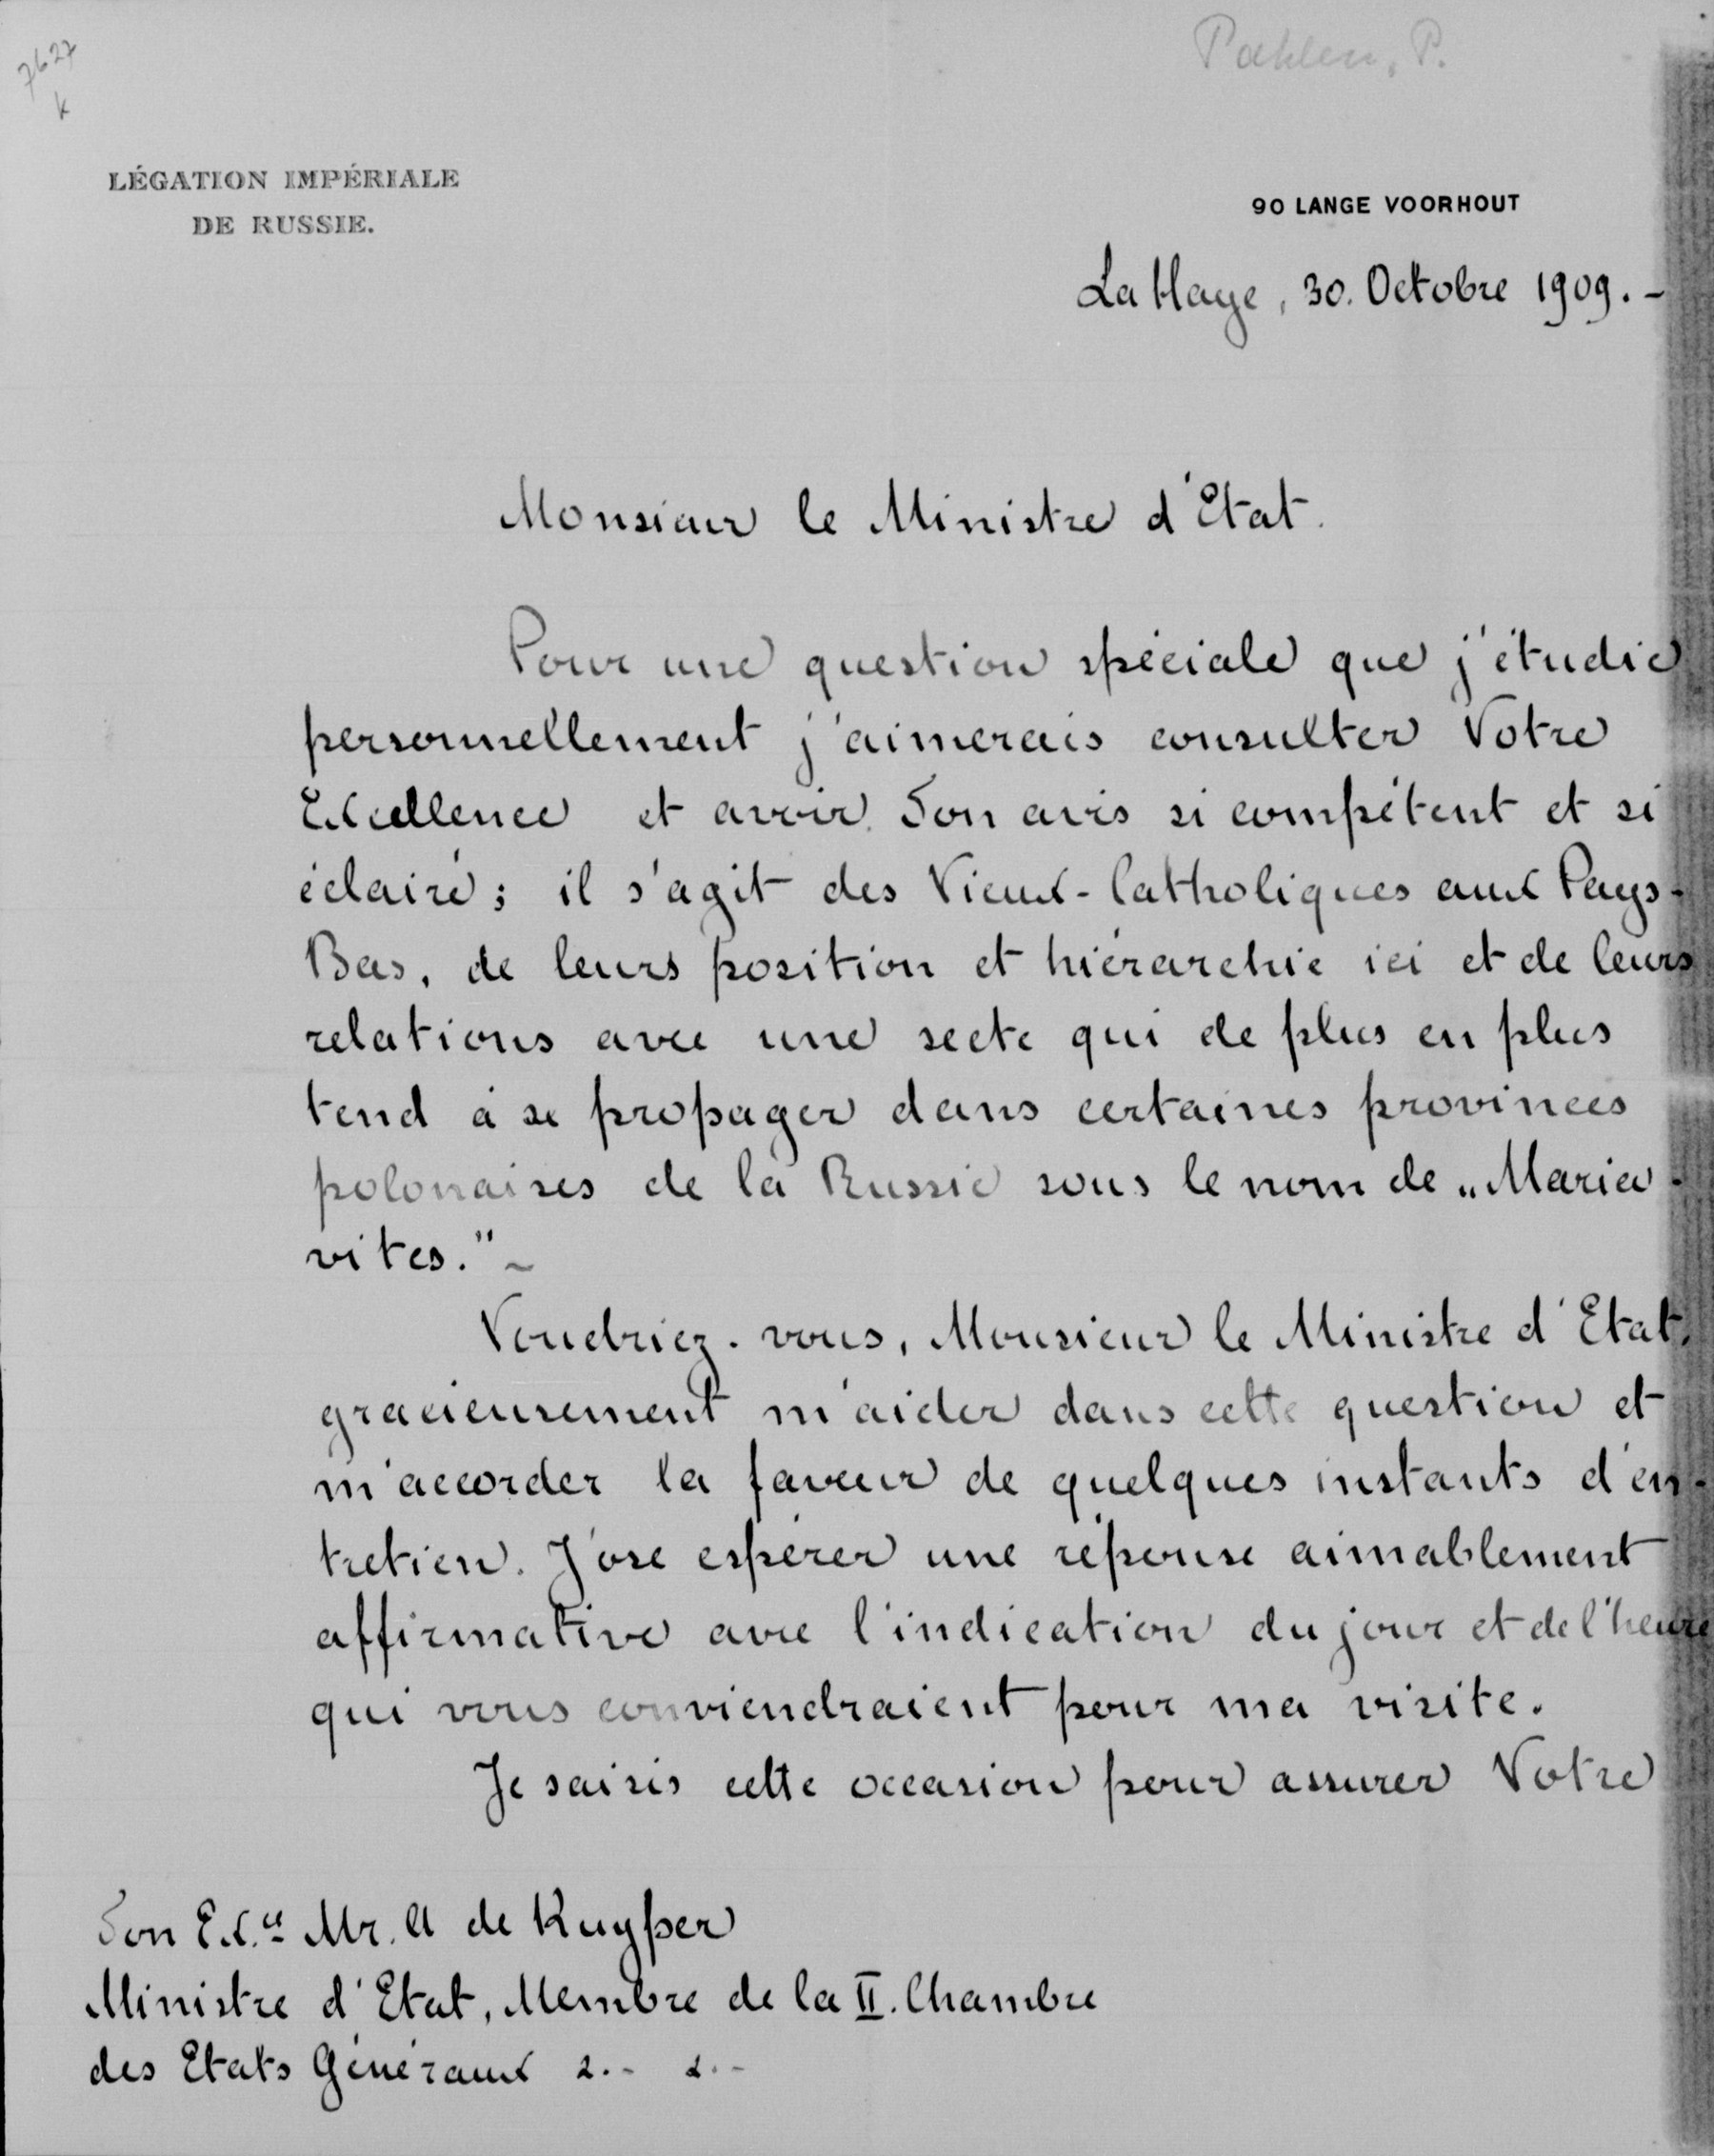 7627
k
Pahlen, P.
LÉGATION IMPÉRIALE
DE RUSSIE.
90 LANGE VOORHOUT
La Haye, 30. Octobre 1909. -
Monsieur le Ministre d'Etat.
Pour une question spéciale que j'étudie
personnellement j'aimerais consulter Votre
Excellence et avoir Son avis si compétent et si
éclairé; il s'agit des Vieux-Catholiques aux Pays-
Bas, de leurs position et hiérarchie ici et de leurs
relations avec une secte qui de plus en plus
tend à se propager dans certaines provinces
polonaises de la Russie sous le nom de „Maria-
vites." ~
Voudriez-vous, Monsieur le Ministre d'Etat,
gracieusement m'aider dans cette question et
m'accorder la faveur de quelques instants d'en-
tretien. J'ose espérer une réponse aimablement
affirmative avec l'indication du jour et de l'heure
qui vous conviendraient pour ma visite.
Je saisis cette occasion pour assurer Votre
Son Ex.ce Mr. A de Kuyper
Ministre d'Etat, Membre de la II. Chambre
des Etats Généraux